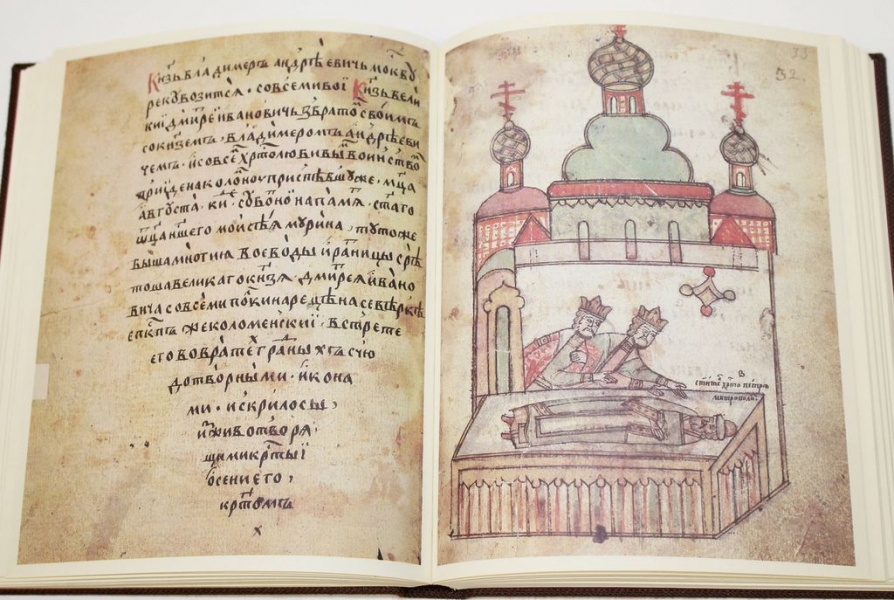 Кн҃зь владимеръ андрѣевичь москво
рекꙋ возитсѧ · со всеми вои Кн҃зь вели
кїи дмитреи ивановичь з братомъ своимъ
со кн҃земъ · владимеромъ андрѣеви
чемъ · и со всѣ хрⷭ҇толюбивы воинство
прїиде на коломнꙋ приспѣвшꙋ же · мц҃а
августа · ки · сꙋботꙋ на памѧ · ст҃аго
ѡц҃а ншего моисѣѧ мурина, тꙋто же
быша многи воеводы и ратницы срѣ
тоша великаго кн҃зѧ · дмитреѧ ивано
вича со всеми полки на рецѣ на сѣвѣрке
епкпъ же коломенскиї · встрете
его во вратѣ граныхъ с чю
дотворными · икона
ми · и с крилосы,
и животворѧ
щими крⷭ҇ты ї
ѡсени его,
крⷭ҇томъ
х
33
52.
петра
митрополи